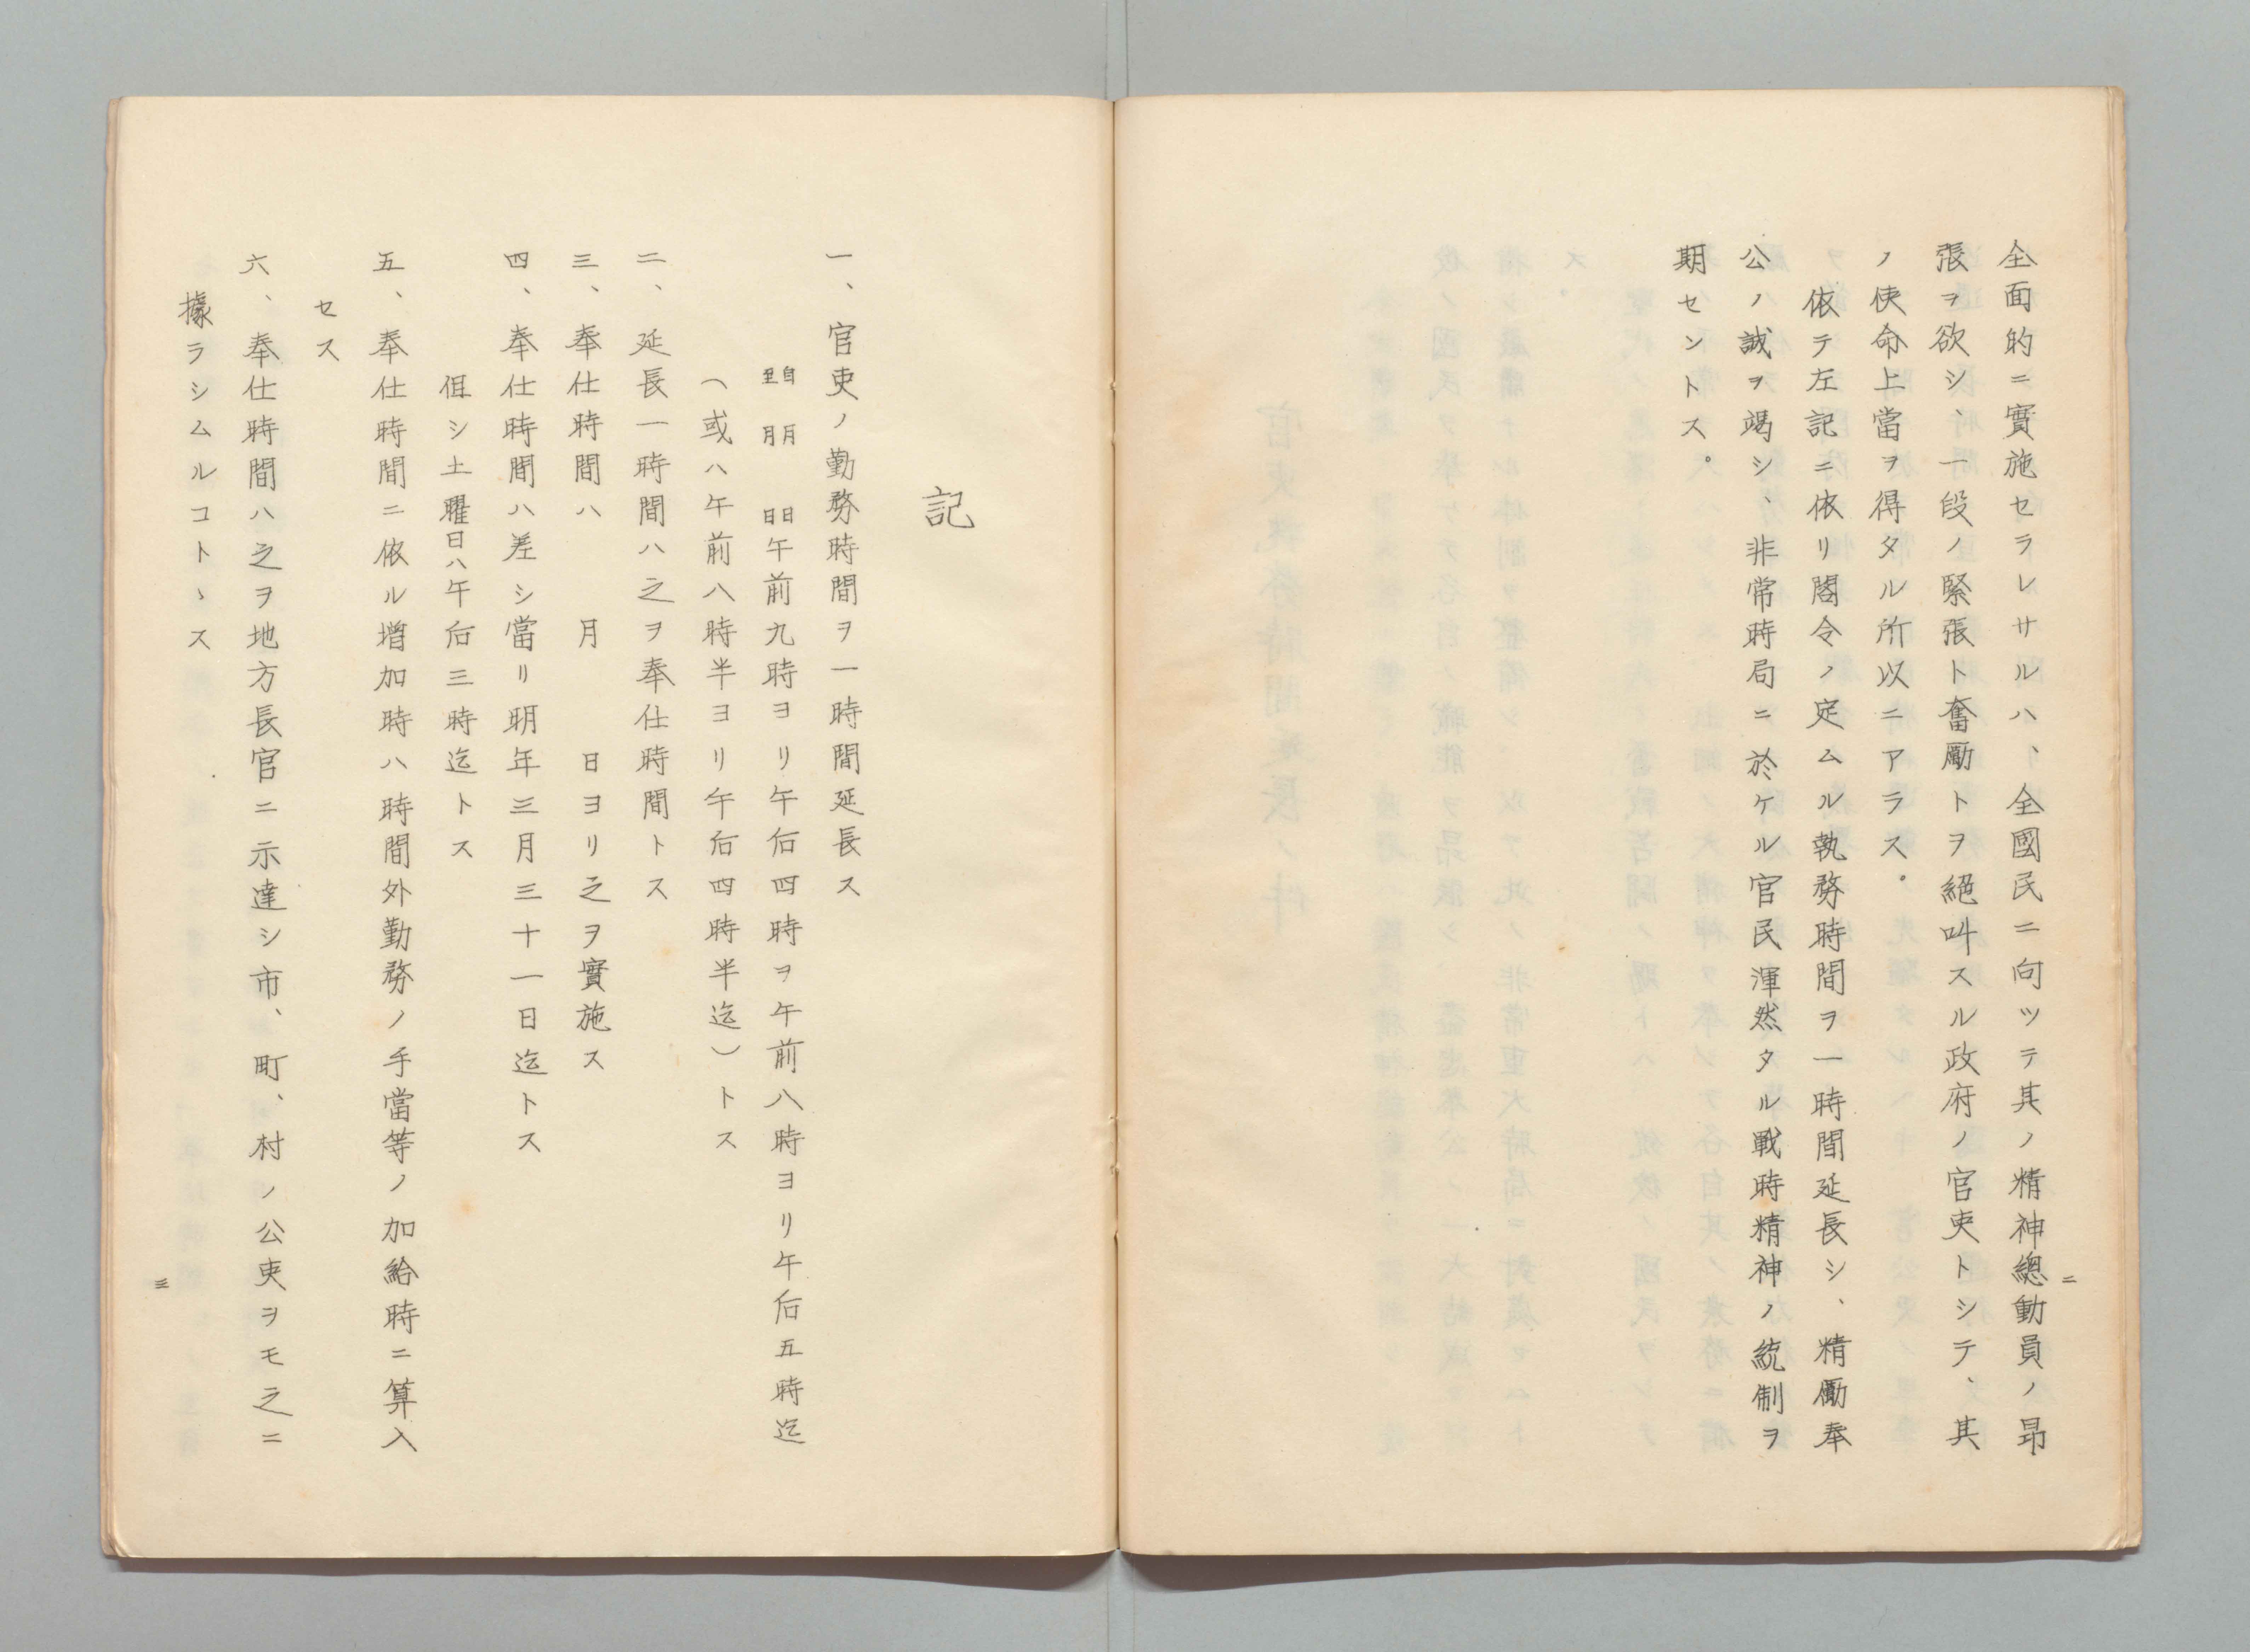 全面的ニ實施セラレサルハ、全國民ニ向ツテ其ノ精神總動員ノ昂
張ヲ欲シ、一段ノ緊張ト奮勵トヲ絕叫スル政府ノ官吏トシテ、其
ノ使命上當ヲ得タル所以ニアラス。
依テ左記ニ依リ閣令ノ定ムル執務時間ヲ一時間延長シ、精勵奉
公ノ誠ヲ竭シ、非常時局ニ於ケル官民渾然タル戰時精神ノ統制ヲ
期セントス。
二
記
一、官吏ノ勤務時間ヲ一時間延長ス
自 月 日
至 月 日
午前九時ヨリ午后四時ヲ午前八時ヨリ午后五時迄
(或ハ午前八時半ヨリ午后四時半迄)トス
二、延長一時間ハ之ヲ奉仕時間トス
三、奉仕時間ハ 月 日ヨリ之ヲ實施ス
四、奉仕時間ハ差シ當リ明年三月三十一日迄トス
但シ土曜日ハ午后三時迄トス
五、奉仕時間ニ依ル增加時ハ時間外勤務ノ手當等ノ加給時ニ算入
セス
六、奉仕時間ハ之ヲ地方長官ニ示達シ市、町、村ノ公吏ヲモ之ニ
據ラシムルコトヽス
三